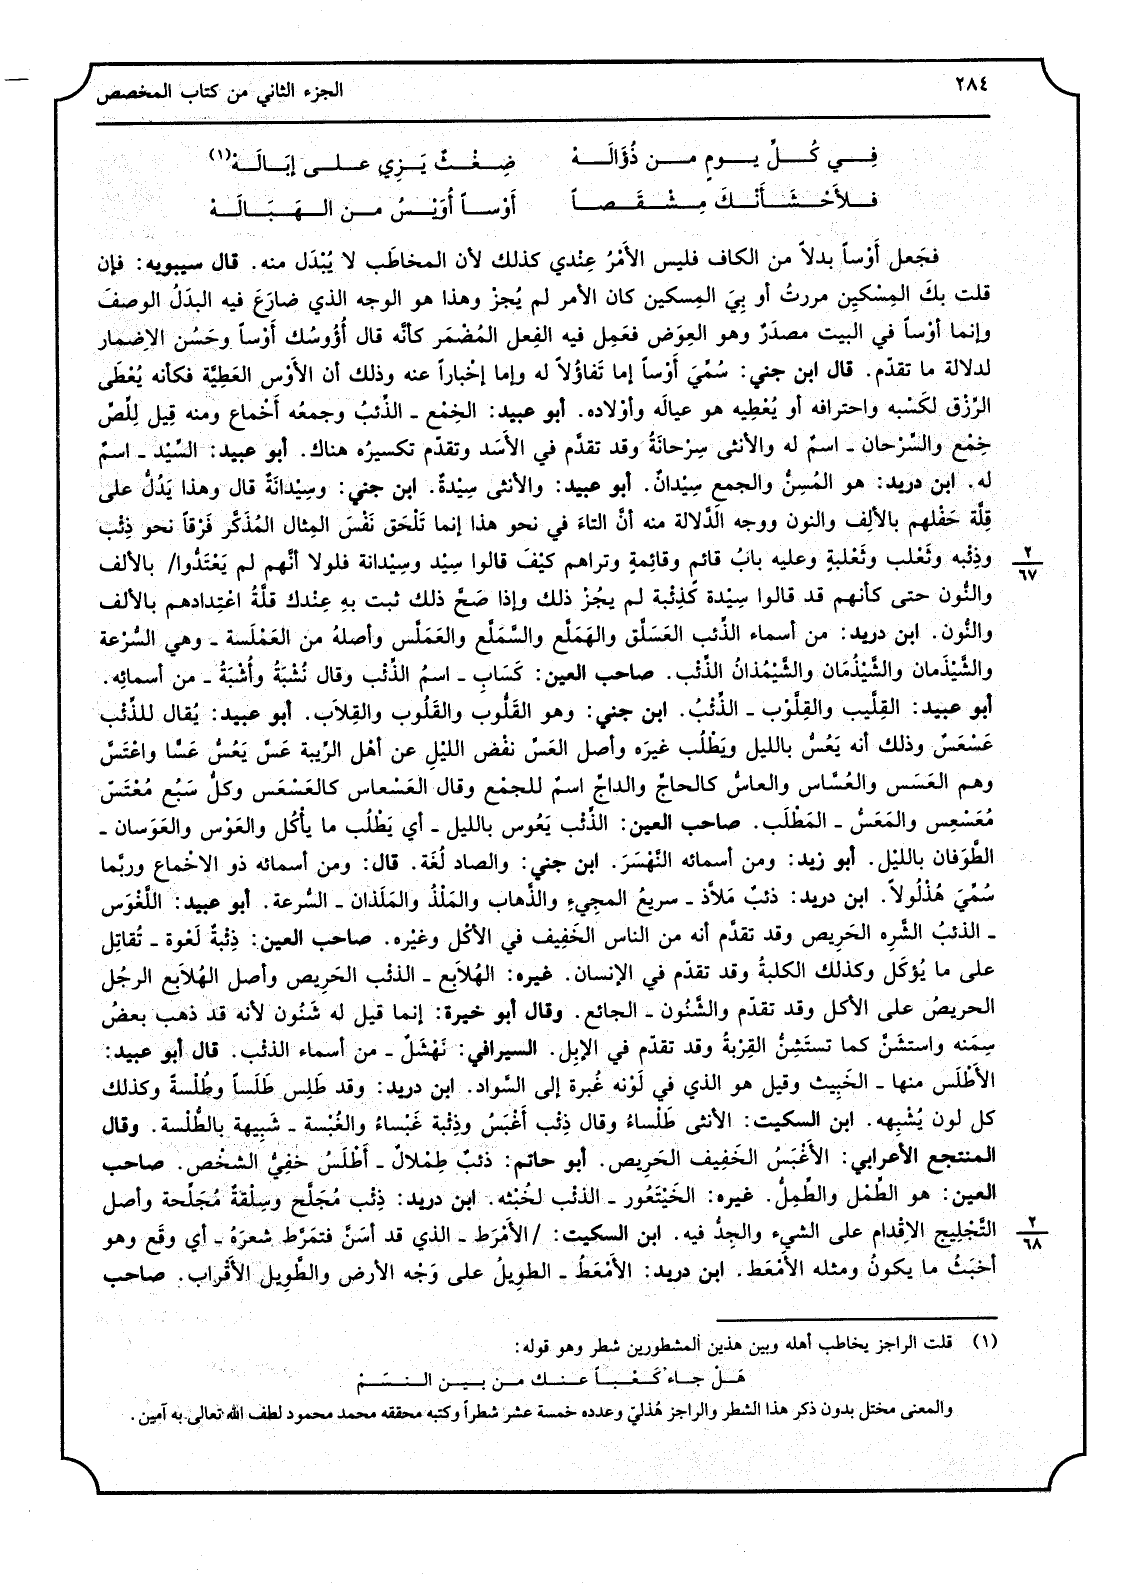 ٢٨٤ الجزء الثاني من كتاب المخصص
فِي كُلِّ يومٍ من ذُؤَالَهْ ضِغْثٌ يَزِي على إبَالَهْ(١)
فلأَحْشَأَنْكَ مِشْقَصاً أَوْساً أُوَيْسُ من الهَبَالَهْ
فجَعل أَوْساً بدلاً من الكاف فليس الأمْرُ عِندي كذلك لأن المخاطَب لا يُبْدَل منه. قال سيبويه: فإن
قلت بكَ المِسْكينِ مررتُ أو بِيَ المِسكين كان الأمر لم يُجزْ وهذا هو الوجه الذي ضارَعَ فيه البدَلُ الوصفَ
وإنما أوْساً في البيت مصدَرٌ وهو العِوَض فعَمِل فيه الفِعل المُضْمَر كأنَّه قال أُؤوسُك أَوْساً وحَسُن الاِضمار
لدلالة ما تقدّم. قال ابن جني: سُمِّيَ أَوْساً إما تَفاؤُلاً له وإما إخْباراً عنه وذلك أن الأَوْس العَطِيَّة فكأنه يُعْطَى
الرِّزْق لكَسْبه واحترافه أو يُعْطِيه هو عيالَه وأوْلاده. أبو عبيد: الخِمْع ـ الذئبُ وجمعُه أَخْماع ومنه قِيل لِلِّصِّ
خِمْع والسِّرْحان ـ اسمٌ له والأنثى سِرْحانَةُ وقد تقدَّم في الأَسَد وتقدّم تكسيرُه هناك. أبو عبيد: السِّيْد ـ اسمٌ
له. ابن دريد: هو المُسِنُّ والجمع سِيْدانٌ. أبو عبيد: والأنثى سِيْدةٌ. ابن جني: وسِيْدانَةٌ قال وهذا يَدُلُّ على
قِلَّة حَفْلهم بالألِف والنون ووجه الدَّلالة منه أنَّ التاءَ في نحو هذا إنما تَلْحَق نَفْسَ المِثال المُذَكَّر فَرْقاً نحو ذِئْب
وذِئْبه وثَعْلب وثَعْلبةٍ وعليه بابُ قائم وقائِمةٍ وتراهم كيْفَ قالوا سِيْد وسِيْدانة فلولا أنَّهم لم يَعْتَدُّوا/ بالألف
٢
٦٧
والنُّون حتى كأنهم قد قالوا سِيْدة كَذِئْبة لم يجُزْ ذلك وإذا صَحَّ ذلك ثبت بهِ عِندك قلَّةُ اعْتِدادهم بالألف
والنُّون. ابن دريد: من أسماء الذِّئب العَسَلَّق والهَمَلَّع والسَّمَلَّع والعَمَلَّس وأصلهُ من العَمْلَسة ـ وهي السُّرْعة
والشَّيْذَمان والشَّيْذُمَان والشَّيْمُذانُ الذِّئْب. صاحب العين: كَسَابِ ـ اسمُ الذِّئْب وقال نُشْبَةُ وأُشْبَةُ ـ من أسمائِه.
أبو عبيد: القِلِّيب والقِلَّوْب ـ الذِّئْبُ. ابن جني: وهو القَلُّوب والقَلُوب والقِلاَب. أبو عبيد: يُقال للذِّئْب
عَسْعَسٌ وذلك أنه يَعُسُّ بالليل ويَطْلُب غيرَه وأصل العَسِّ نفْض الليْلِ عن أهْل الرِّيبة عَسَّ يَعُسُّ عَسًّا واعْتَسَّ
وهم العَسَس والعُسَّاس والعاسُّ كالحاجِّ والداجِّ اسمٌ للجمْع وقال العَسْعاس كالعَسْعَس وكلُّ سَبُع مُعْتَسّ
مُعَسْعِس والمَعَسُّ ـ المَطْلَب. صاحب العين: الذِّئْب يَعُوس بالليل ـ أي يَطْلُب ما يأْكُل والعَوْس والعَوَسان ـ
الطَّوَفان بالليْل. أبو زيد: ومن أسمائه النَّهْسَرَ. ابن جني: والصاد لُغَة. قال: ومن أسمائه ذو الاخْماع وربَّما
سُمِّيَ هُذْلُولاً. ابن دريد: ذئبٌ مَلاَّذ ـ سريعُ المجِيءِ والذَّهاب والمَلْذُ والمَلَذان ـ السُّرعة. أبو عبيد: اللَّغْوَس
ـ الذئبُ الشَّرِه الحَرِيص وقد تقدَّم أنه من الناس الخَفِيف في الأكْل وغيْره. صاحب العين: ذِئْبةٌ لَعْوة ـ تُقاتِل
على ما يُؤكَل وكذلك الكلبةُ وقد تقدّم في الإنسان. غيره: الهُلاَبِع ـ الذئْب الحَرِيص وأصل الهُلاَبِع الرجُل
الحريصُ على الأكل وقد تقدّم والشَّنُون ـ الجائع. وقال أبو خيرة: إنما قيل له شَنُون لأنه قد ذهب بعضُ
سِمَنه واستشَنَّ كما تستَشِنُّ القِرْبةُ وقد تقدّم في الإبِل. السيرافي: نَهْشَلٌ ـ من أسماء الذئْب. قال أبو عبيد:
الأَطْلَس منها ـ الخَبِيث وقيل هو الذي في لَوْنه غُبرة إلى السَّواد. ابن دريد: وقد طَلِس طَلَساً وطُلْسةً وكذلك
كل لون يُشْبِهه. ابن السكيت: الأنثى طَلْساءُ وقال ذِئْب أَغْبَسُ وذِئْبة غَبْساءُ والغُبْسة ـ شَبِيهة بالطُّلْسة. وقال
المنتجع الأعرابي: الأَغْبَسُ الخَفِيف الحَرِيص. أبو حاتم: ذئبٌ طِمْلالٌ ـ أَطْلَسُ خفِيُّ الشخْص. صاحب
العين: هو الطِّمْل والطِّمِلُّ. غيره: الخَيْتَعُور ـ الذئْب لخُبْثه. ابن دريد: ذِئْب مُجَلِّح وسِلْقةٌ مُجَلِّحة وأصل
التَّجْلِيج الاِقْدام على الشيء والجِدُّ فيه. ابن السكيت: /الأَمْرَط ـ الذي قد أسَنَّ فتمَرَّط شعرَهُ ـ أي وقَع وهو
٢
٦٨
أخبَثُ ما يكونُ ومثله الأمْعَط. ابن دريد: الأَمْعَطُ ـ الطوِيلُ على وَجْه الأرض والطَّوِيل الأَقْراب. صاحب
(١) قلت الراجز يخاطب أهله وبين هذين المشطورين شطر وهو قوله:
هَلْ جاءَ كَعْباً عنك من بين النسَمْ
والمعنى مختل بدون ذكر هذا الشطر والراجز هُذليّ وعدده خمسة عشر شطراً وكتبه محققه محمد محمود لطف الله تعالى به آمين.